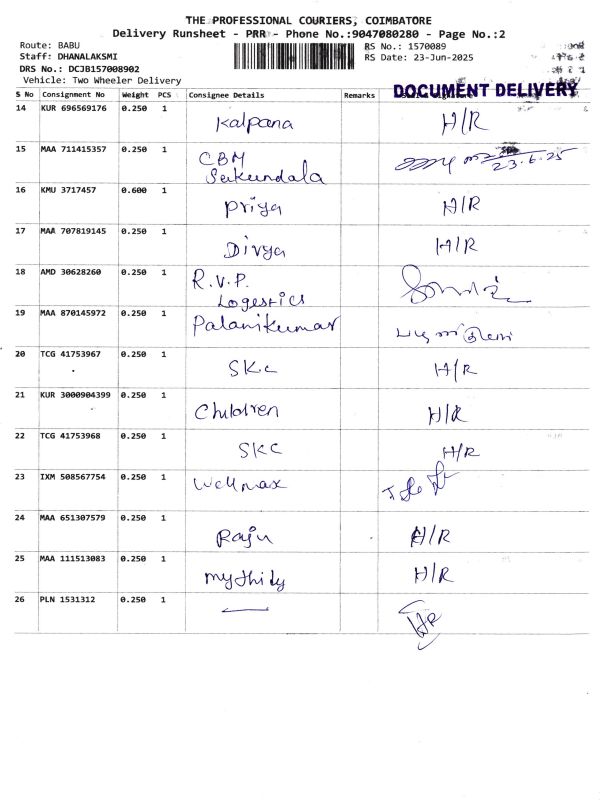 THE PROFESSIONAL COURIERS, COIMBATORE
Delivery Runsheet - PRR - Phone No.:9047080280 - Page No.:2
Route: BABU
Staff: DHANALAKSMI
DRS No.: DCJB157008902
Vehicle: Two Wheeler Delivery
RS No.: 1570089
RS Date: 23-Jun-2025
DOCUMENT DELIVERY
S No Consignment No Weight PCS Consignee Details Remarks
14 KUR 696569176 0.250 1 Kalpana H/R
15 MAA 711415357 0.250 1 CBM 23.6.25
16 KMU 3717457 0.600 1 Priya H/R
17 MAA 707819145 0.250 1 Divya H/R
18 AMD 30628260 0.250 1 R.V.P.
Logestics
19 MAA 870145972 0.250 1 Palanikumar
20 TCG 41753967 0.250 1 SKC H/R
21 KUR 3000904399 0.250 1 Children H/R
22 TCG 41753968 0.250 1 SKC H/R
23 IXM 508567754 0.250 1 Wellmax
24 MAA 651307579 0.250 1 Raju H/R
25 MAA 111513083 0.250 1 mythily H/R
26 PLN 1531312 0.250 1 HR